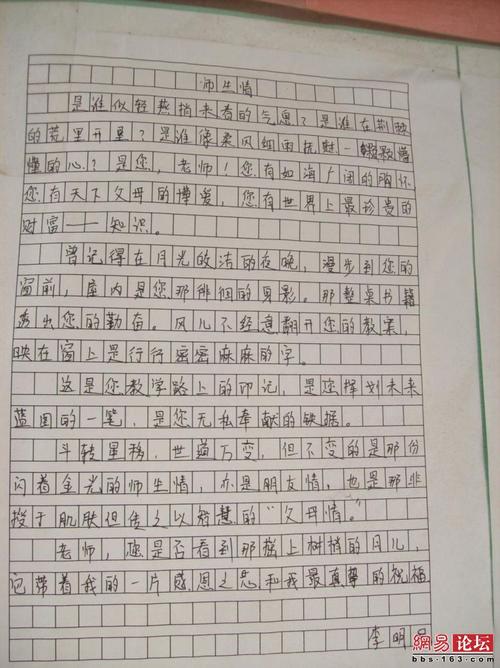 师生情
是谁似轻燕捎来春的气息？是谁在荆棘
的荒里开垦？是谁像柔风细雨抚慰一颗颗懵
懂的心？是您，老师！您有如海广阔的胸怀
您有天下父母的博爱，您有世界上最珍贵的
财富——知识。
曾记得在月光皎洁的夜晚，漫步到您的
窗前，室内是您那徘徊的身影。那整桌书籍
透出您的勤奋。风儿不经意翻开您的教案，
映在窗上是行行密密麻麻的字。
这是您教学路上的印记，是您择划未来
蓝图的一笔，是您无私奉献的铁据。
斗转星移，世道万变，但不变的是那份
闪着金光的师生情，亦是朋友情，也是那非
授于肌肤但传之以智慧的“父母情”。
老师，您是否看到那摇上树梢的月儿，
它带着我的一片感恩之意和我最真挚的祝福
李明
网易 论坛
bbs·163.com